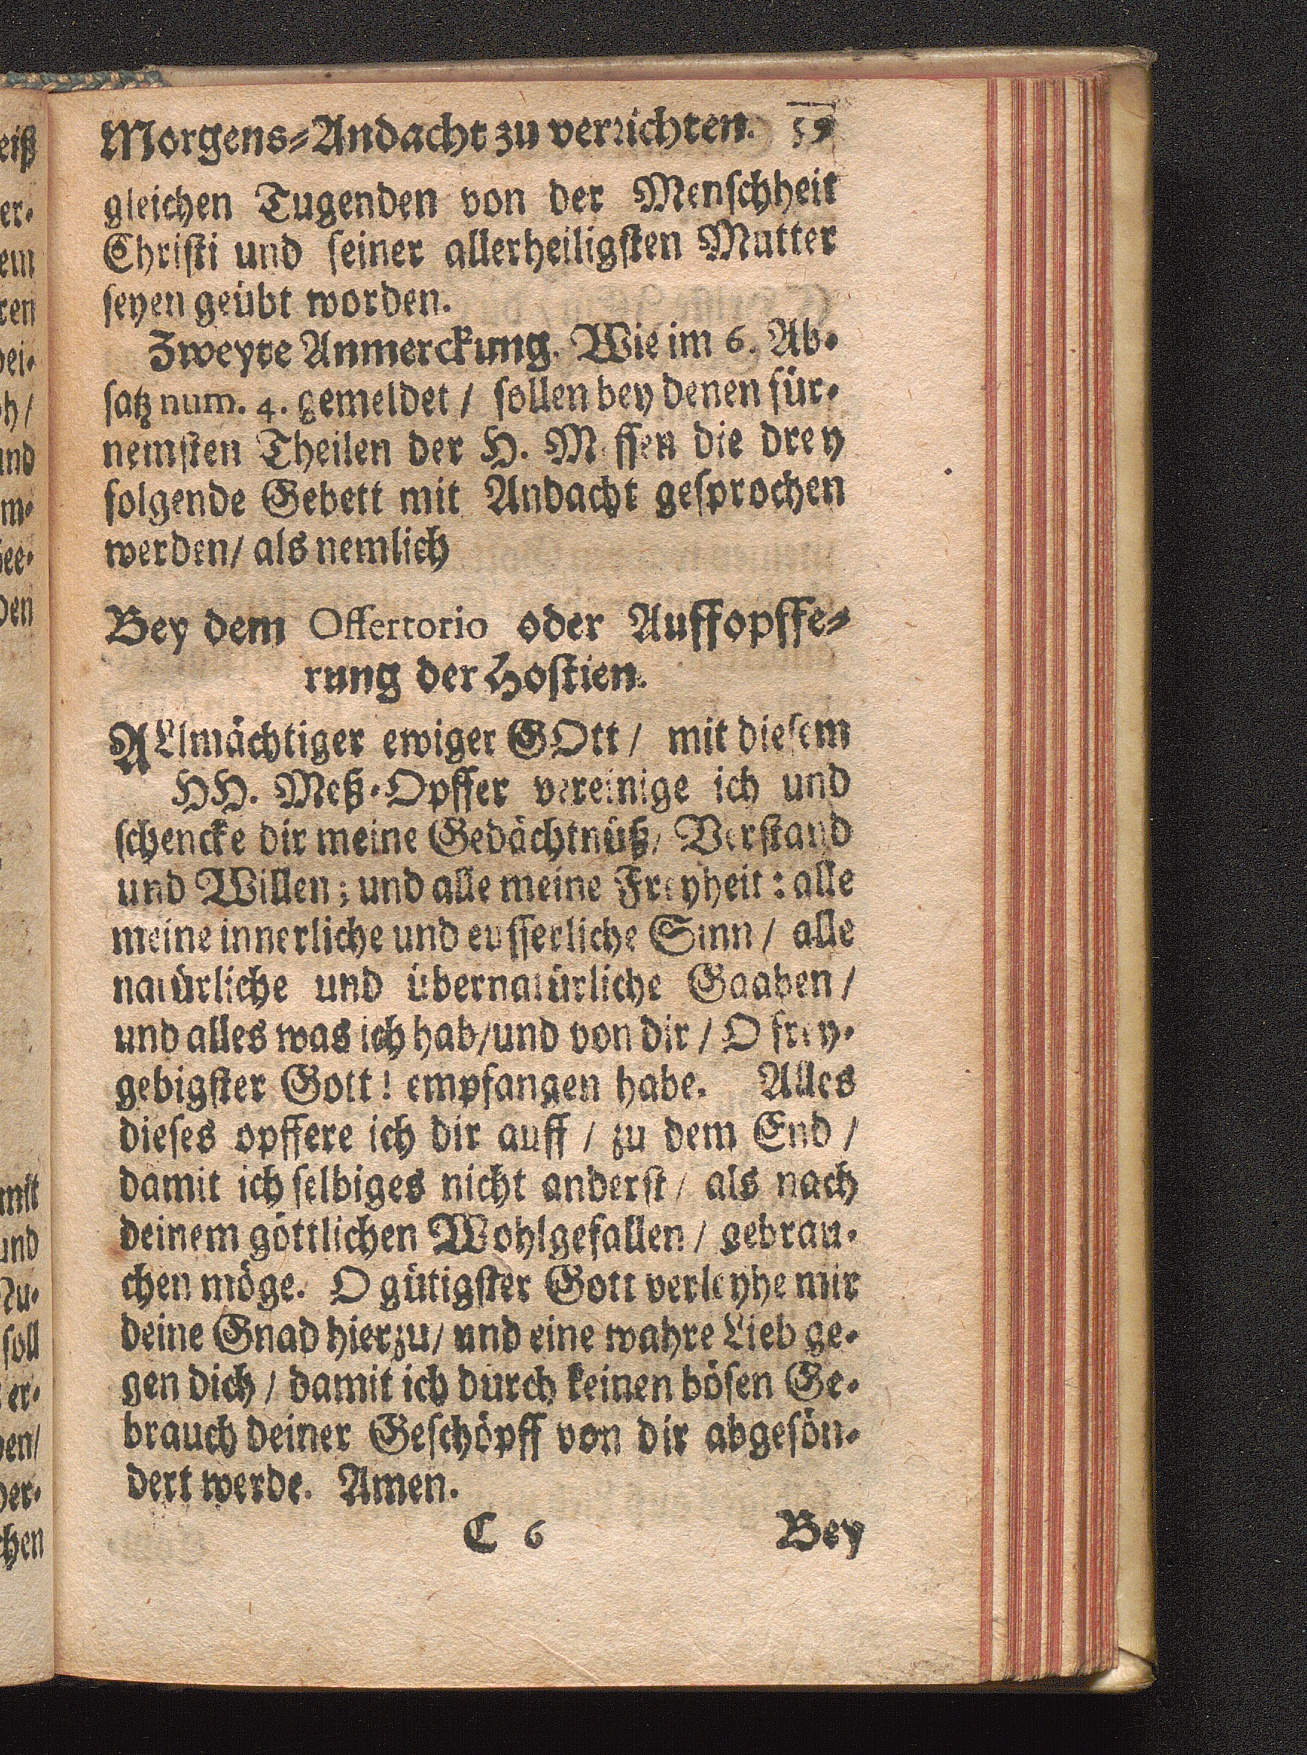 Morgens-Andacht zu verrichten. 59
gleichen Tugenden von der Menschheit
Christi und seiner allerheiligsten Mutter
seyen geübt worden.
Zweyte Anmerckung. Wie im 6. Ab-
satz num. 4. gemeldet / sollen bey denen für-
nemsten Theilen der H. Messen die drey
folgende Gebett mit Andacht gesprochen
werden / als nemlich
Bey dem Offertorio oder Auffopffe-
rung der Hostien.
ALlmächtiger ewiger GOtt / mit diesem
HH. Meß-Opffer vereinige ich und
schencke dir meine Gedächtnüß / Verstand
und Willen ; und alle meine Freyheit : alle
meine innerliche und eusserliche Sinn / alle
natürliche und übernatürliche Gaaben /
und alles was ich hab / und von dir / O frey-
gebigster Gott ! empfangen habe. Alles
dieses opffere ich dir auff / zu dem End /
damit ich selbiges nicht anderst / als nach
deinem göttlichen Wohlgefallen / gebrau-
chen möge. O gütigster Gott verleyhe mir
deine Gnad hierzu / und eine wahre Lieb ge-
gen dich / damit ich durch keinen bösen Ge-
brauch deiner Geschöpff von dir abgesön-
dert werde. Amen.
C 6 Bey